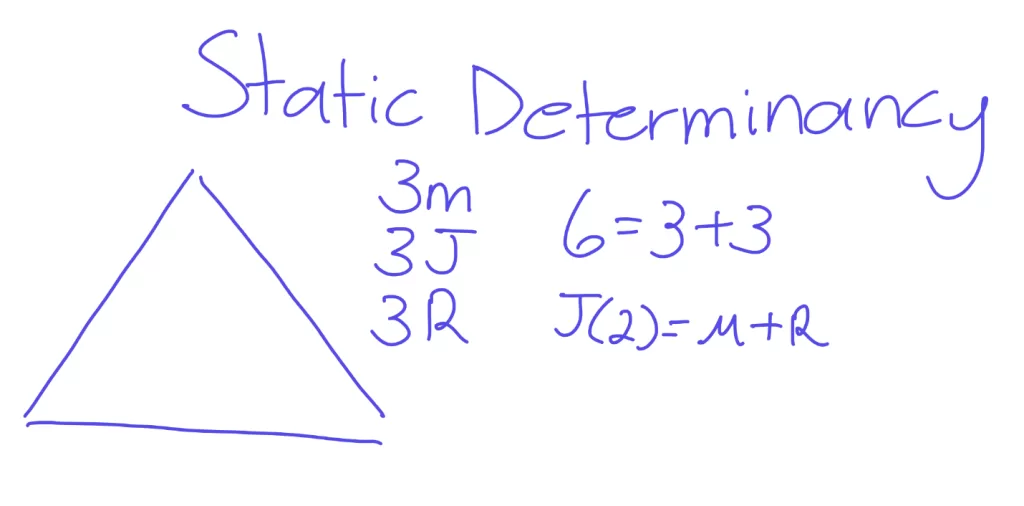 Static Determinancy
3m
3J
3R
6=3+3
J(2)=M+R